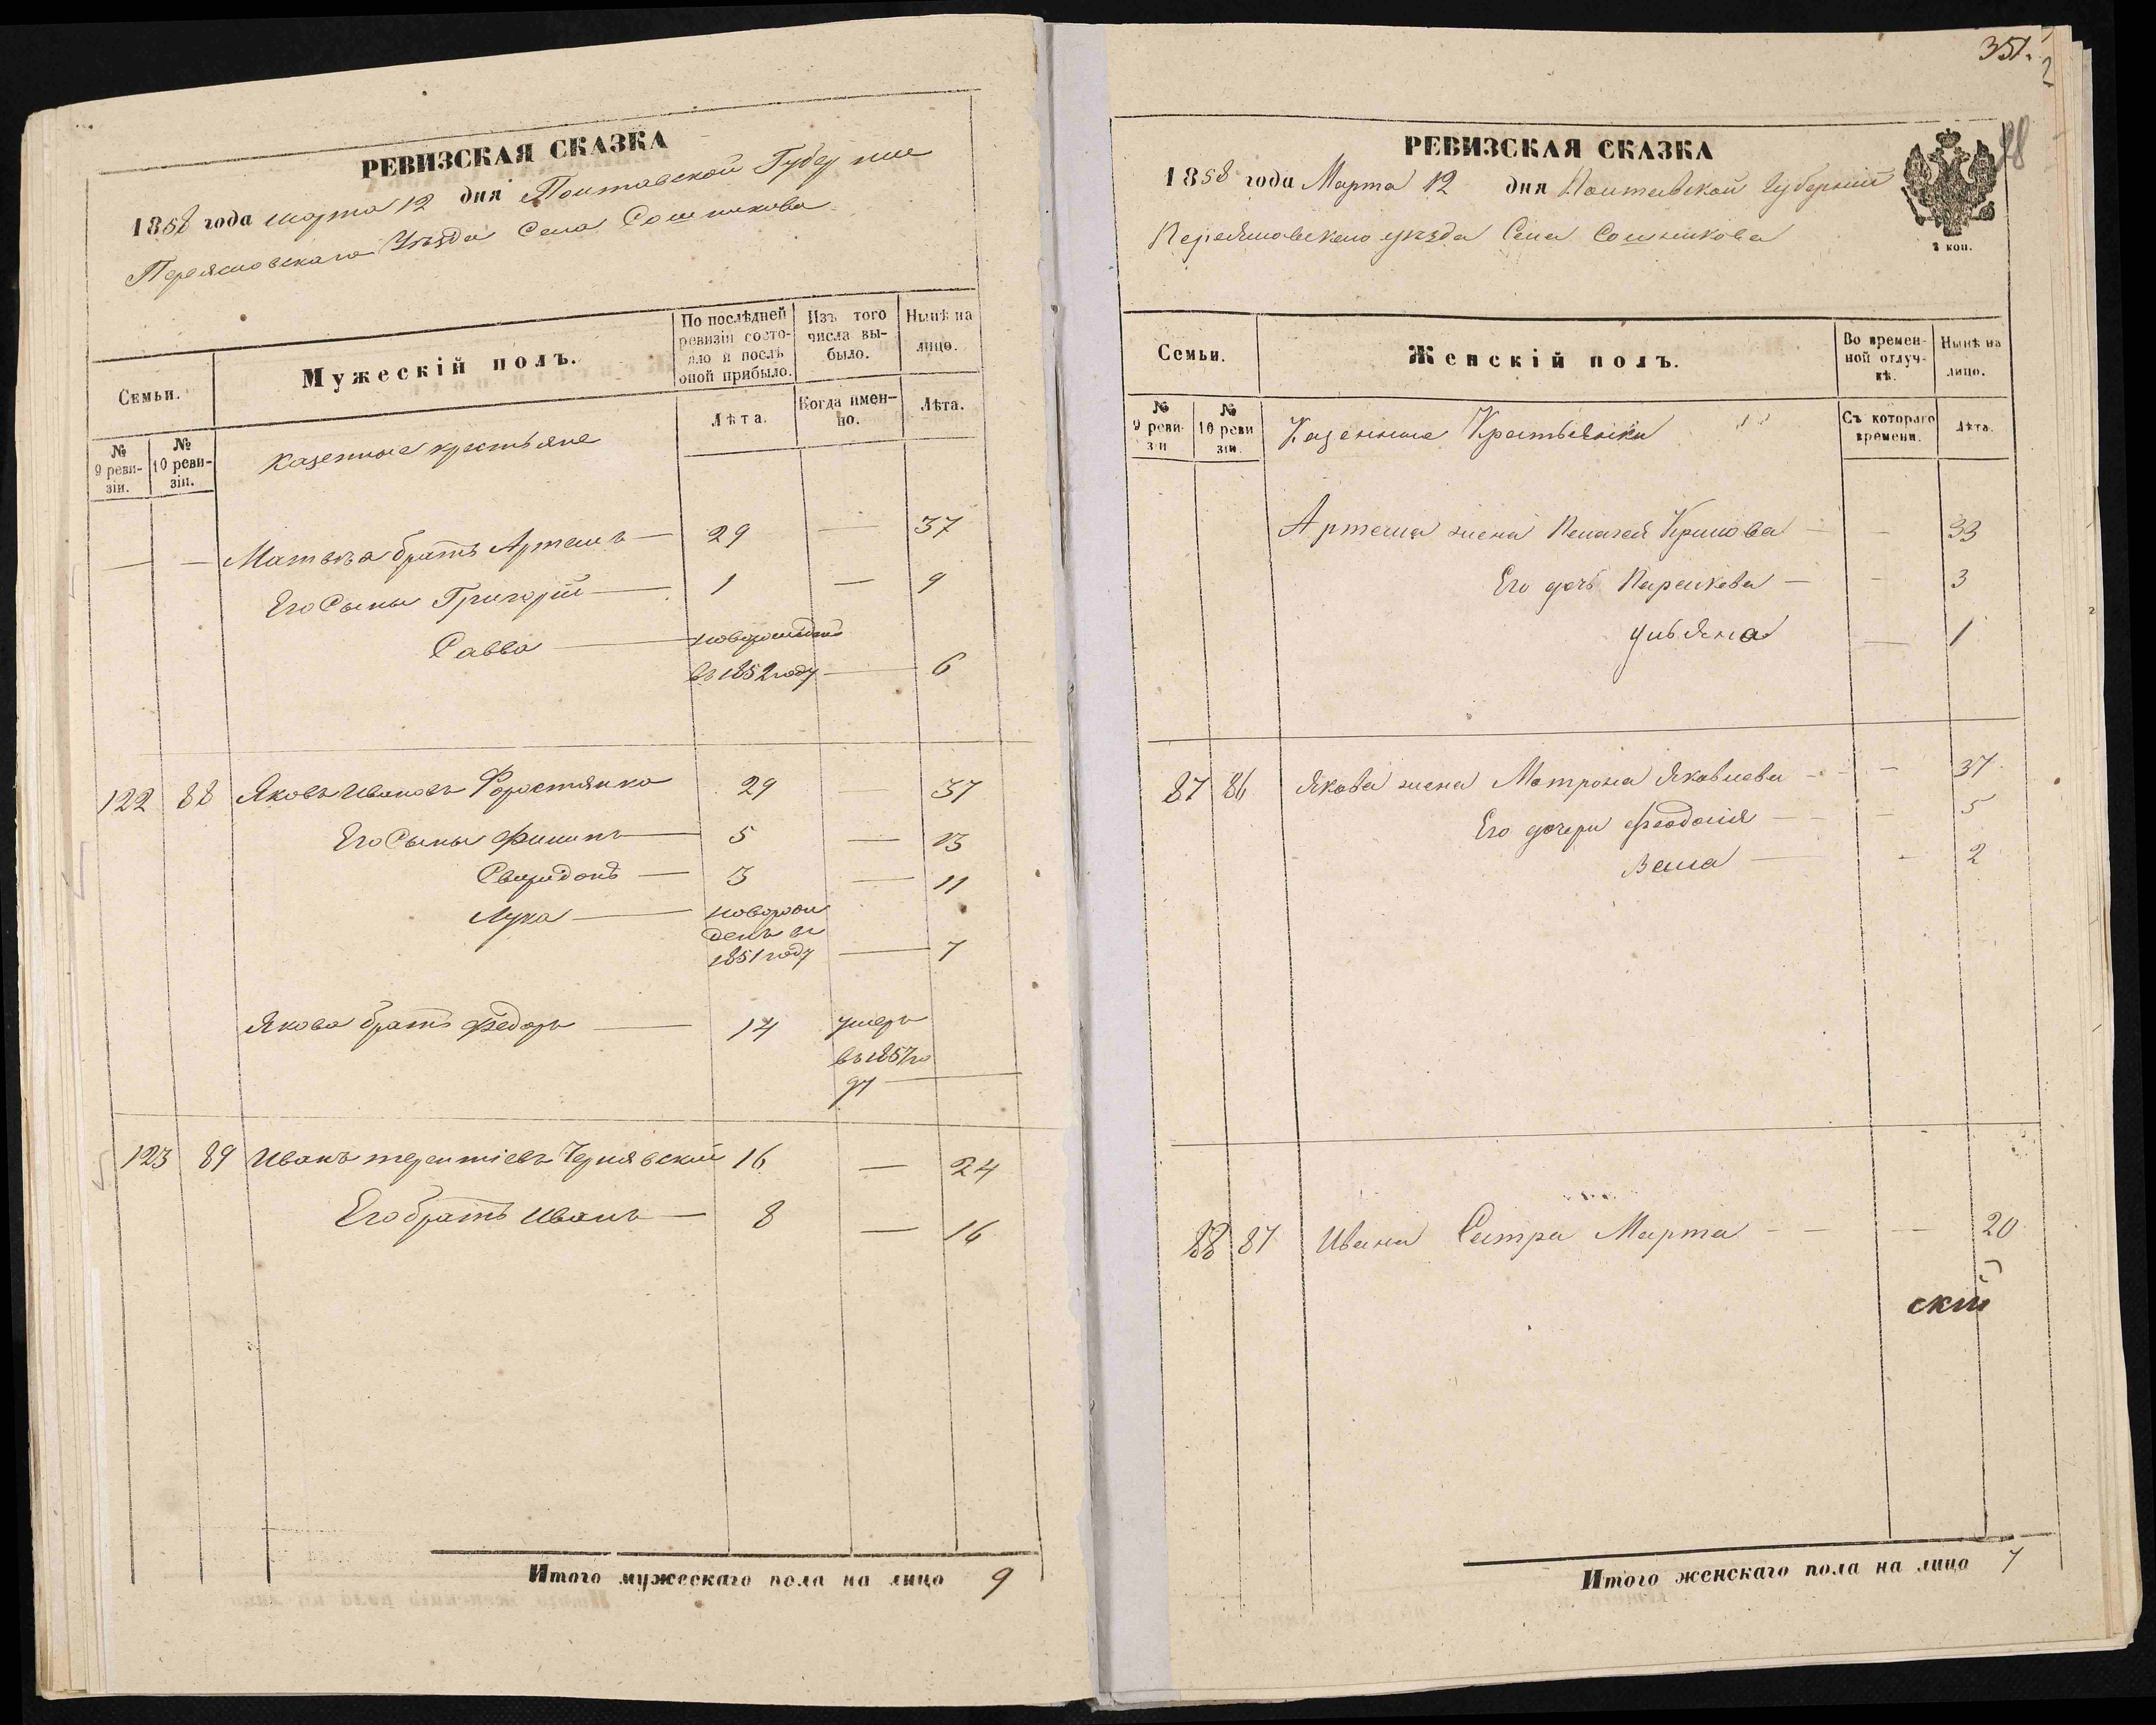 РЕВИЗСКАЯ СКАЗКА
1858 года марта 12 дня Полтавской Губернии
Переясловскаго Уѣзда Села Сошникова
Семьи.
Мужескій полъ.
По послѣдней ревизіи состояло и послѣ оной прибыло.
Изъ того числа выбыло.
Нынѣ на лицо.
№ 9 ревизіи.
№ 10 ревизіи.
казенные крестьяне
Лѣта.
Когда именно.
Лѣта.
— — Матвѣя братъ Артемъ — 29 — 37
Его Сыны Григорій — 1 — 9
Савва — новорожденъ
въ 1852 году — 6
122 88 Яковъ Ивановъ Форостянко 29 37
Его Сыны Филипъ — 5 — 13
Свиридонъ — 3 — 11
Лука — новорож
денъ въ
1851 году — 7
Якова братъ Федоръ — 14 умеръ
въ 1857 го
ду —
123 89 Иванъ терентіевъ Чернявский 16 — 24
Его братъ Иванъ — 8 — 16
Итого мужескаго пола на лицо 9
351.
88
РЕВИЗСКАЯ СКАЗКА
1858 года Марта 12 дня Полтавской Губерніи
Переясловскаго уѣзда Села Сошникова
2 коп.
Семьи.
Женскій полъ.
Во временной отлучкѣ.
Нынѣ на лицо.
№ 9 ревизіи
№ 10 ревизіи.
Казенные Крестьянки
Съ котораго времени.
Лѣта.
Артема жена Пелагея Климова — — 33
Его дочь Парасковья — — 3
Ульяна — 1
87 86 Якова жена Матрона Яковлева — — 37
Его дочери Феодосія — — 5
Васса — — 2
88 87 Ивана Сестра Марта — — — 20
скій
Итого женскаго пола на лицо 7